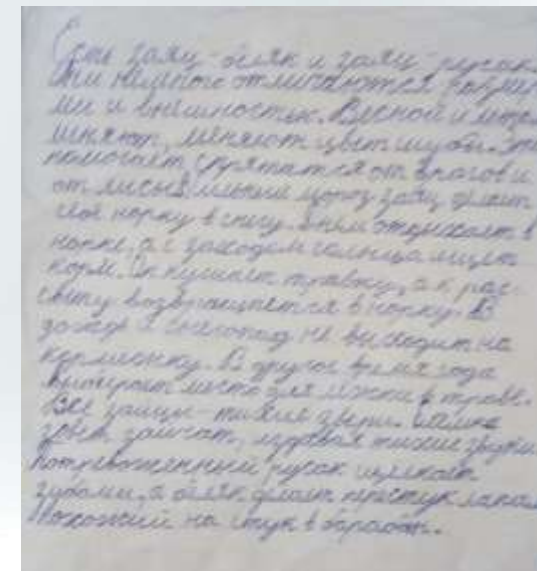 Есть заяц-беляк и заяц-русак.
Они немного отличаются размер
ми и внешностью. Весной и
линяют, меняют цвет шубы. Это
помогает спрятатся от врагов и
от лисы. зимний мороз заяц делает
себе норку в снегу. Днём отдыхает в
норке, а с заходом солнца ищет
корм. Он кушает травку, а к рас-
свету возвращается в норку. В
дождь и снегопад не выходит на
кормёжку. В другое время года
выбирает место для лёжки в траве.
Все зайцы - тихие звери. Самка
зовёт зайчат, издавая тихие звуки.
Потревоженный русак щёлкает
зубами, а беляк делает перестук лапами
Похожий на стук в барабан.